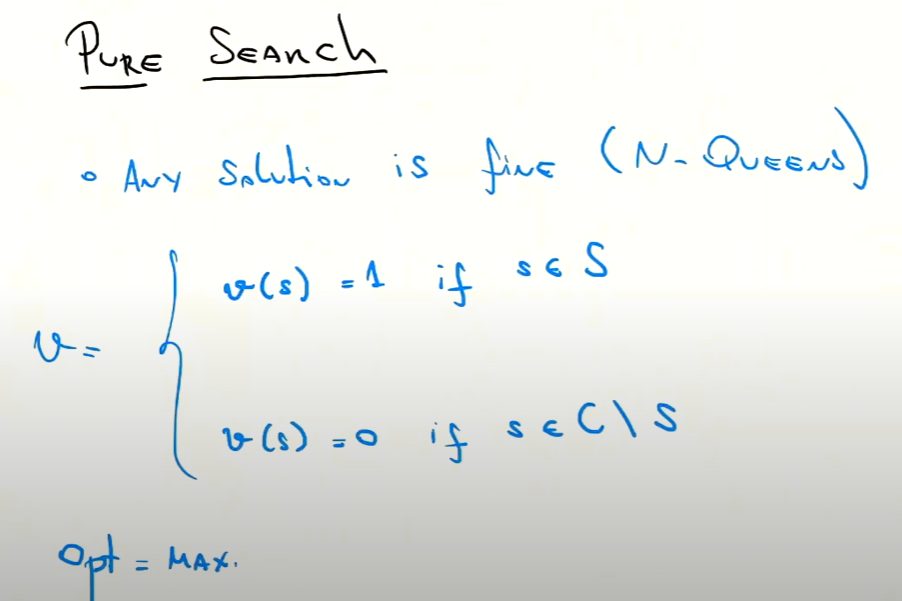 PURE SEARCH
• ANY Solution is fine (N-QUEENS)
v(s) = 1 if s ∈ S
v =
v(s) = 0 if s ∈ C \ S
Opt = MAX.